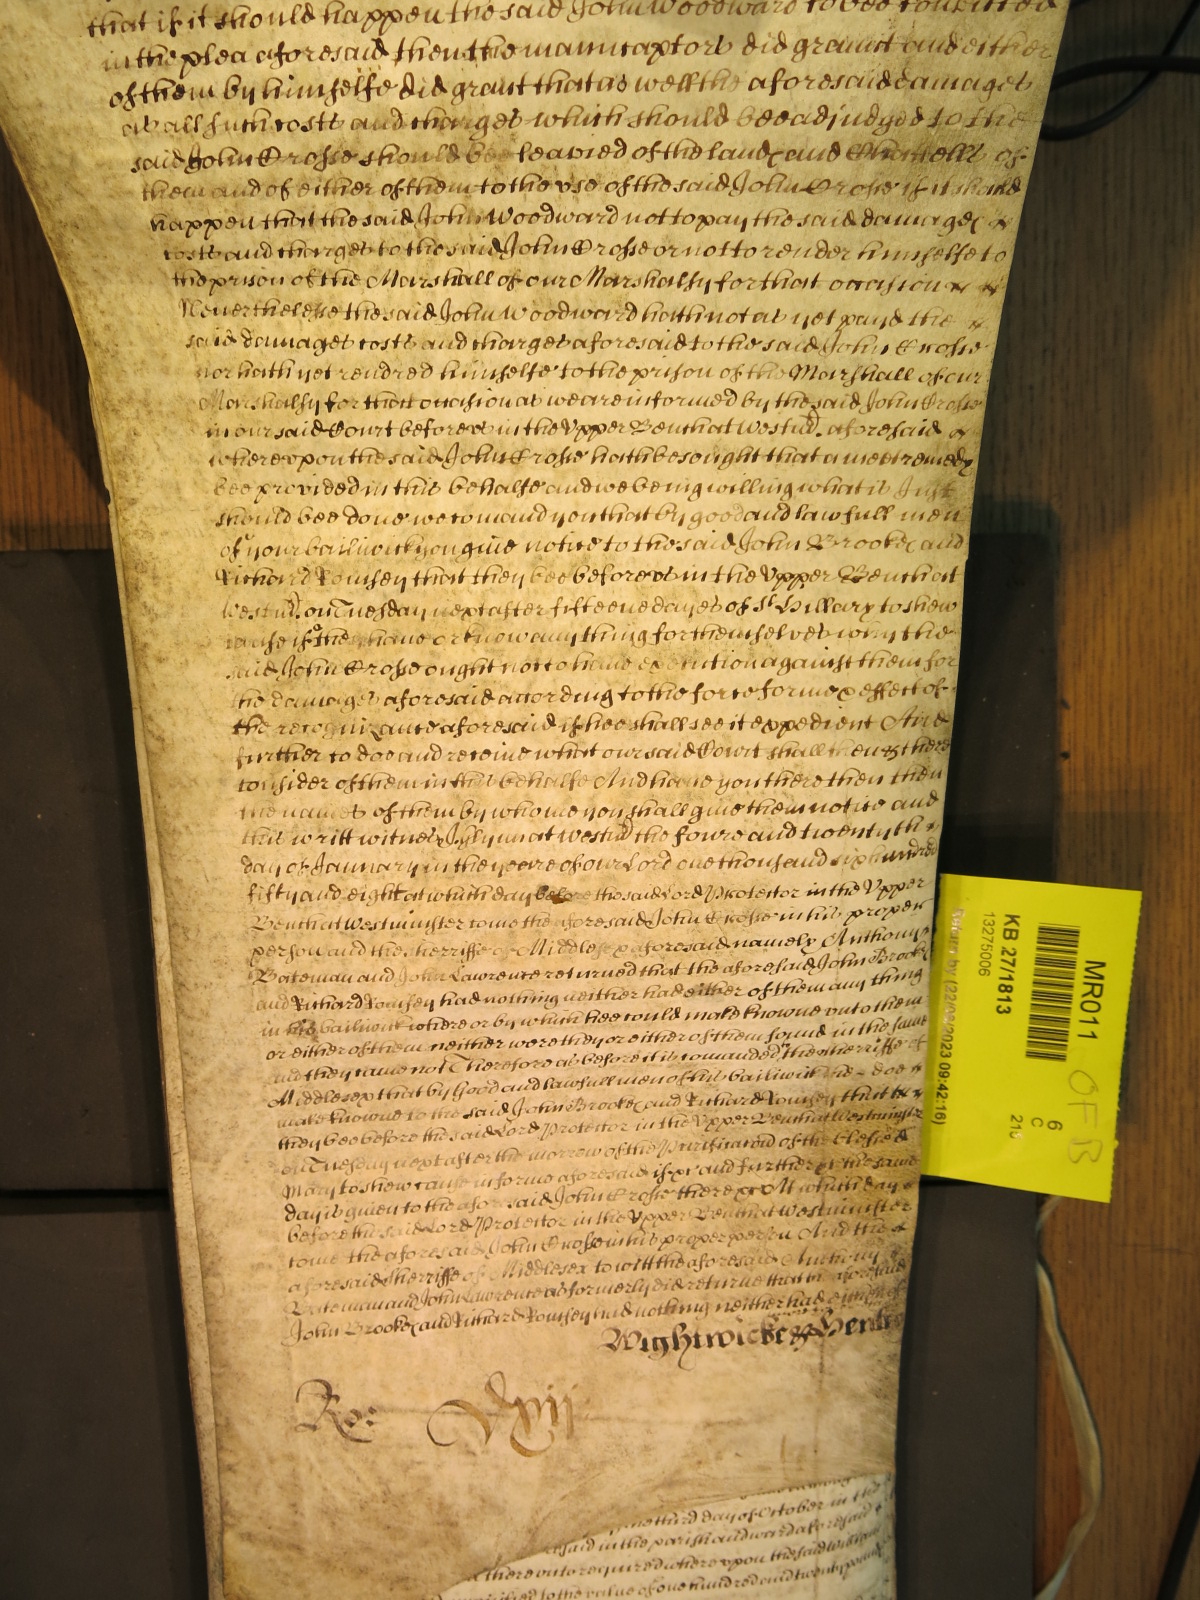 that if it should happen the said John Woodward to bee convicted
in the plea aforesaid then the manucaptors did graunt and either
of them by himselfe did grant that as well the aforesaid damages
as all such costs and charges which should bee adjudged to the
said John Crosse should bee leavied of the land and Chattells of
them and of either of them to the use of the said John Crosse if it should
happen that the said John Woodward not to pay the said damages
costs and charges to the said John Crosse or not to render himselfe to
the prison of the Marshall of our Marshalsy for that occasion
Neverthelesse the said John Woodward hath not as yet payd the
said damages costs and charges aforesaid to the said John Crosse
nor hath yet rendred himselfe to the prison of the Marshall of our
Marshalsy for that occasion as we are informed by the said John Crosse
in our said Court before us in the Vpper Bench at Westm̃ aforesaid
wherevpon the said John Crosse hath besought that a meet remedy
bee provided in this behalfe and we being willing what is Just
should bee done we comand you that by good and lawfull men
of your bailiwick you give notice to the said John Brooke and
Richard Romsey that they bee before us in the Vpper Bench at
Westm̃ on Tuesday next after fifteene dayes of St Hillary to shew
cause if they have or know any thing for themselves why the
said John Crosse ought not to have execution against them for
the damages aforesaid according to the force forme & effect of
the recognizance aforesaid if hee shall see it expedient And
further to doe and receive what our said Court shall then & there
consider of them in this behalfe And have you there then
the names of them by whome you shall give them notice and
this writt witnes at Westm̃ the foure and twentyth
day of January in the yeare of our Lord one thousand six hundred
fifty and eight at which day before the said Lord Protector in the Vpper
Bench at Westminster come the aforesaid John Crosse in his proper
person and the Sherriffe of Middlesex aforesaid namely Anthony
Bateman and John Lawrence returned that the aforesaid John Brooke
and Richard Romsey had nothing neither had either of them any thing
in his bailiwick where or by which hee could make knowne vnto them
or either of them neither were they or either of them found in the same
and they came not Therefore as before it is comanded the Sherriffe of
Middlesex that by good and lawfull men of his bailiwick hee doe
make knowne to the said John Brooke and Richard Romsey that
they bee before the said Lord Protector in the Vpper Bench at Westminster
on Tuesday next after the morrow of the Purificacoñ of the blessed
Mary to shew cause in forme aforesaid if &c and further &c the same
day is given to the aforesaid John Crosse there &c At which day
before the said Lord Protector in the Vpper Bench at Westminster
come the aforesaid John Crosse in his proper person And the
aforesaid Sherriffe of Middlesex to witt the aforesaid Anthony
Bateman and John Lawrence as formerly did returne that the aforesaid
John Brooke and Richard Romsey had nothing neither had either of
Wightwicke & Henley
Ro: Vxij
third day of October in the
said in the parish and ward aforesaid
thereonto required wherevpon the said William
to the value of one hundred and twenty pounds
MR011
KB 27/1813
13275006
6
C
OFB
Return by (22/03/2023 09:42:16)